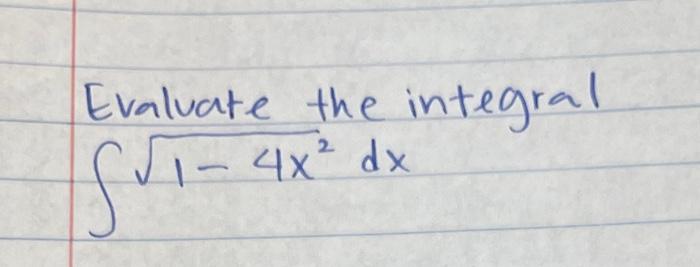 Evaluate the integral
∫√1 - 4x² dx